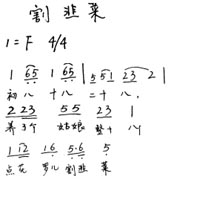 割韭菜
1=F 4/4
1 65 1 65 | 551 23 2 |
初八 十八 二十八,
2 23 55 23 1
弟3个 姑娘 整十 八
1 12 16 5·6 5
点花 罗儿 割韭 菜